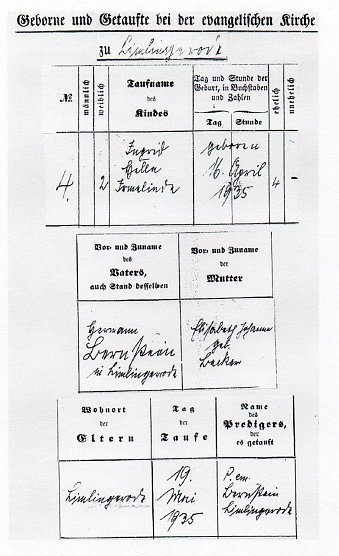 Geborne und Getaufte bei der evangelischen Kirche
zu Limlingerode
№ männlich weiblich Taufname des Kindes Tag und Stunde der Geburt, in Buchstaben und Zahlen Tag Stunde ehelich unehelich
4. 2 Ingrid Helle Irmelinde geboren 16. April 1935 4 –
Vor- und Zuname des Vaters, auch Stand desselben
Vor- und Zuname der Mutter
Hermann Bernstein in Limlingerode
Elisabeth Johanne geb. Becker
Wohnort der Eltern
Tag der Taufe
Name des Predigers, der es getauft
Limlingerode
19. Mai 1935
P. em. Bernstein Limlingerode